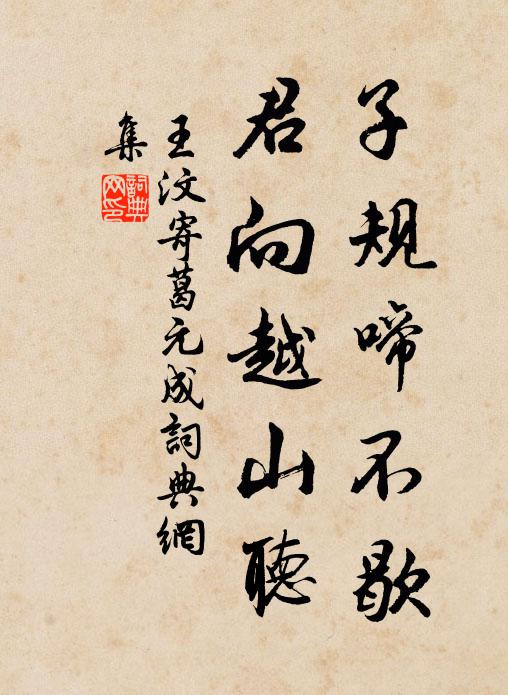 子規啼不歇
君向越山聽
王汶寄葛元成詞典網
集
詞典
網印